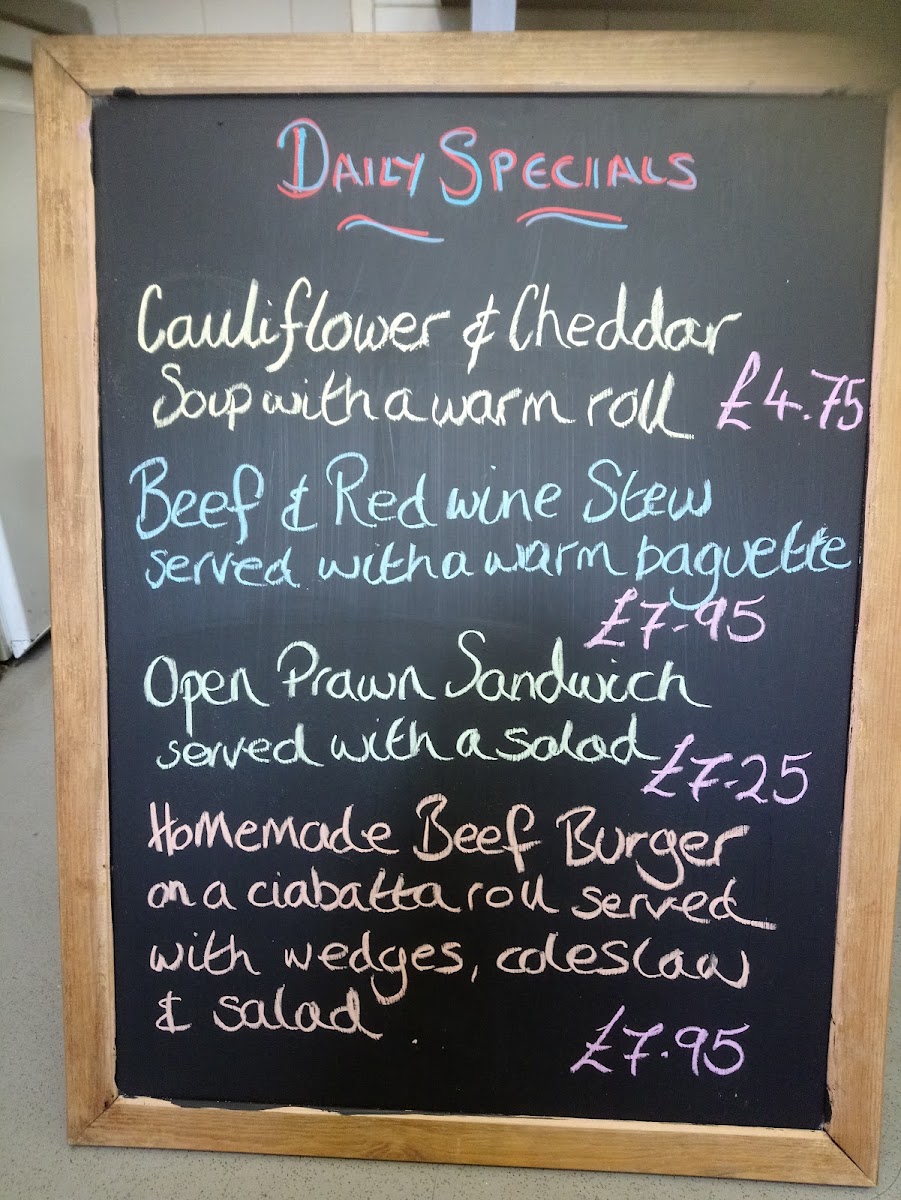 DAILY SPECIALS
Cauliflower & Cheddar
Soup with a warm roll £4.75
Beef & Red wine Stew
served with a warm baguette
£7.95
Open Prawn Sandwich
served with a salad
£7.25
Homemade Beef Burger
on a ciabatta roll served
with wedges, coleslaw
& salad
£7.95